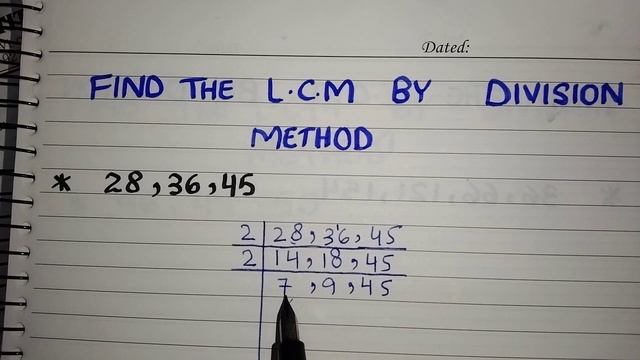 Dated:
FIND THE L.C.M BY DIVISION
METHOD
* 28, 36, 45
2 | 28, 36, 45
2 | 14, 18, 45
7, 9, 45